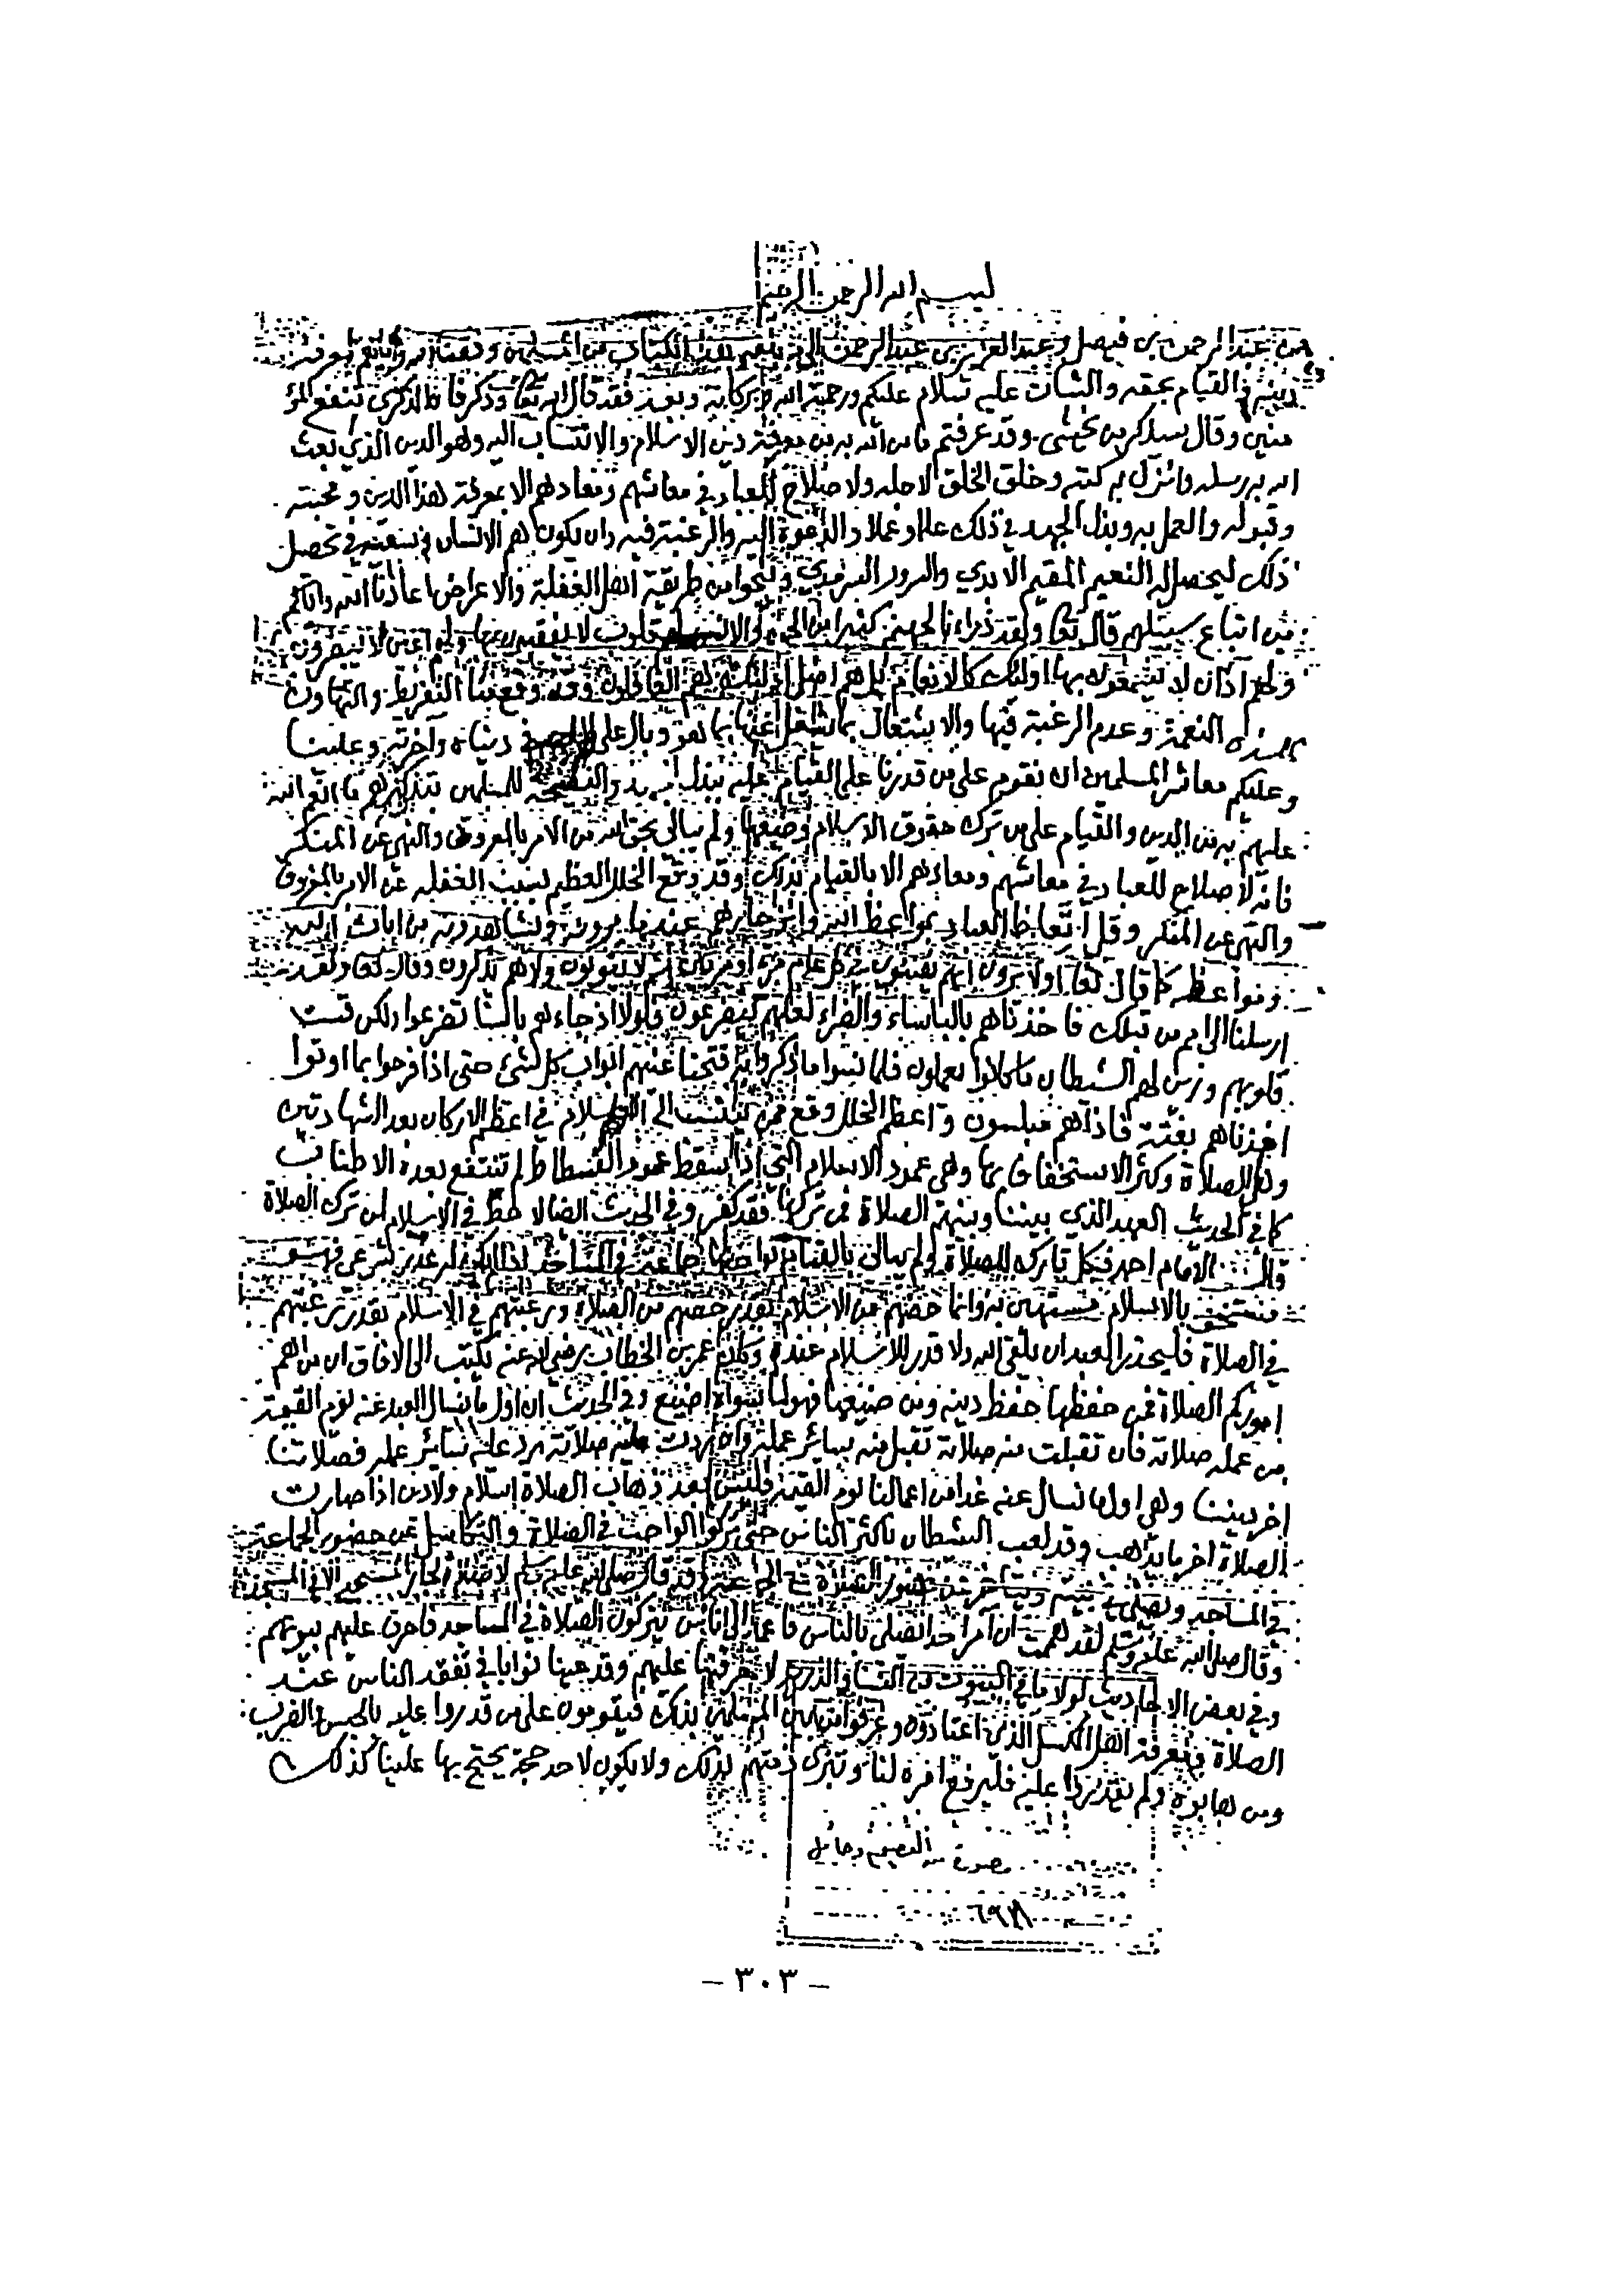 بسم الله الرحمن الرحيم
من عبد الرحمن بن فيصل وعبد العزيز بن عبد الرحمن الى من يبلغه هذا الكتاب من المسلمين وفقنا الله واياهم لمعرفة
دينه والقيام بحقه والثبات عليه سلام عليكم ورحمة الله وبركاته وبعد فقد قال الله تعا وذكر فان الذكرى تنفع المؤ
منين وقال سيذكر من يخشى وقد عرفتم ما من الله به من معرفة دين الاسلام والانتساب اليه وهو الدين الذي بعث
الله به رسله وانزل به كتبه وخلق الخلق لاجله ولا صلاح للعباد في معاشهم ومعادهم الا بمعرفة هذا الدين ومحبته
وقبوله والعمل به وبذل الجهد في ذلك علما وعملا والدعوة اليه والرغبة فيه وان يكون هم الانسان وسعيه في تحصيل
ذلك ليحصل له النعيم المقيم الابدي والسرور السرمدي وينجو من طريقة اهل الغفلة والاعراض اعاذنا الله واياكم
من اتباع سبيلهم قال تعا ولقد ذراءنا لجهنم كثيرا من الجن والانس لهم قلوب لا يفقهون بها ولهم اعين لا يبصرون
ولهم آذان لا يسمعون بها اولئك كالانعام بل هم اضل اولئك هم الغافلون وقد وقع منا التفريط والتهاون
بهذه النعمة وعدم الرغبة فيها والاشتغال بما شغل عنها بما هو وبال على في دنياه وآخرته وعلينا
وعليكم معاشر المسلمين ان نقوم على من قدرنا على القيام عليه ببذل والنصيحة للمسلمين بتذكيرهم ما انعم الله
عليهم به من الدين والقيام على من ترك حقوق الاسلام وضيعها ولم يبالي بحق الله من الامر بالمعروف والنهي عن المنكر
فانه لا صلاح للعباد في معاشهم ومعادهم الا بالقيام بذلك وقد وقع الخلل العظيم بسبب الغفلة عن الامر بالمعروف
والنهي عن المنكر وقل اتعاظ العباد بمواعظ الله وانزجارهم عندما يرونه ويشاهدونه من ايات الله
ومواعظه كما قال تعا اولا يرون انهم يفتنون في كل عام مرة او مرتين ثم لا يتوبون ولا هم يذكرون وقال تعا ولقد
ارسلنا الى امم من قبلك فاخذناهم بالباساء والضراء لعلهم يتضرعون فلولا اذ جاءهم باسنا تضرعوا ولكن قست
قلوبهم وزين لهم الشيطان ما كانوا يعملون فلما نسوا ما ذكروا به فتحنا عليهم ابواب كل شئ حتى اذا فرحوا بما اوتوا
اخذناهم بغتة فاذا هم مبلسون واعظم الخلل وقع ممن ينتسب الى الاسلام في اعظم الاركان بعد الشهادتين
وهو الصلاة وكثر الاستخفاف بها وهي عمود الاسلام التي اذا سقط عمود الفسطاط لم تنتفع بعده الاطناب
كما في الحديث العهد الذي بيننا وبينهم الصلاة فمن تركها فقد كفر وفي الحديث ايضا لا حظ في الاسلام لمن ترك الصلاة
وقال الامام احمد فكل تارك للصلاة ولم يبالي بالقيام بواجبها جماعة في المساجد اذا لم يكن له عذر شرعي فهو
مستخف بالاسلام مستهين به وانما حضهم من الاسلام بقدر حضهم من الصلاة ورغبتهم في الاسلام بقدر رغبتهم
في الصلاة فليحذر العبد ان يلقى الله ولا قدر للاسلام عنده وكان عمر بن الخطاب رضي الله عنه يكتب الى الافاق ان من اهم
اموركم الصلاة فمن حفظها حفظ دينه ومن ضيعها فهو لما سواها اضيع وفي الحديث ان اول ما يسال العبد عنه يوم القيمة
من عمله صلاته فان تقبلت منه صلاته تقبل منه سائر عمله وان ردت عليه صلاته رد عليه سائر عمله فصلاتنا
اخر ديننا وهي اول ما نسال عنه غدا من اعمالنا يوم القيمة فليس بعد ذهاب الصلاة اسلام ولا دين اذا صارت
الصلاة اخر ما يذهب وقد لعب الشيطان باكثر الناس حتى تركوا الواجب في الصلاة والتكاسل عن حضور الجماعة
في المساجد ويصلي في بيته ويتاخر عن حضور الصلاة مع الجماعة وقد قال صلى الله عليه وسلم لا صلاة لجار المسجد الا في المسجد
وقال صلى الله عليه وسلم لقد هممت ان آمر احدا يصلي بالناس فاعمد الى اناس يتركون الصلاة في المساجد فاحرق عليهم بيوتهم
وفي بعض الاحاديث لولا ما في البيوت من النساء والذرية لاحرقتها عليهم وقد عينا نوابا في تفقد الناس عند
الصلاة ومعرفة اهل الكسل الذين اعتادوه وعرفوا من بين المسلمين بذلك فيقومون على من قدروا عليه بالحبس والضرب
ومن هابوه ولم يقدروا عليه فليرفع امره لنا وتبرى ذمتهم بذلك ولا يكون لاحد حجة يحتج بها علينا كذلك
مصورة من القصيم وحائل
٦٩٢١
- ٣٠٣ -